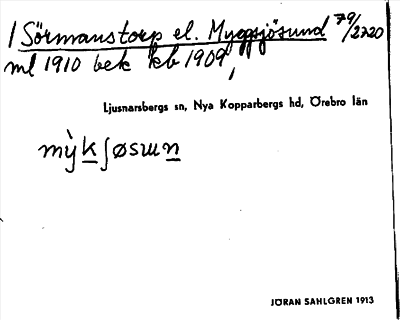 1 Sörmanstorp el. Myggsjösund 79/2220
ml 1910 bek kb 1909,
Ljusnarsbergs sn, Nya Kopparbergs hd, Örebro län
mỳkʃøsɯn
JÖRAN SAHLGREN 1913